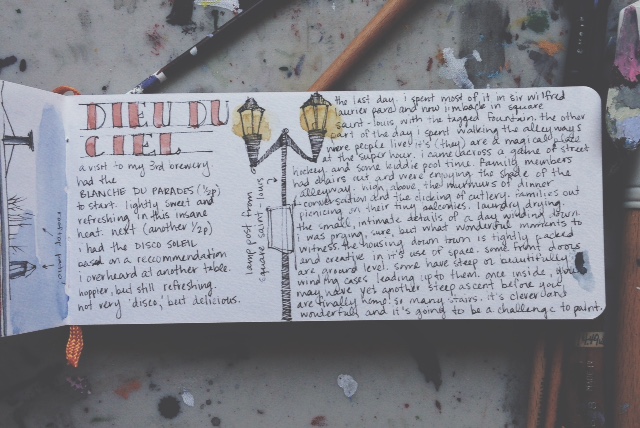 DIEU DU
CIEL
a visit to my 3rd brewery
had the
BLANCHE DU PARADIS (½p)
to start. lightly sweet and
refreshing in this insane
heat. next (another ½p)
i had the DISCO SOLEIL
based on a reccommendation
i overheard at another table.
hoppier, but still refreshing.
not very 'disco,' but delicious.
lamp post from
square saint-louis
the last day. i spent most of it in sir wilfred
laurier parc and now i'm back in square
saint-louis, with the tagged fountain. the other
part of the day i spent walking the alleyways
where people live. it's (they) are a magical place
at the supper hour. i came across a game of street
hockey and some kiddie pool time. family members
had chairs out and were enjoying the shade of the
alleyway. high above, the murmurs of dinner
conversation and the clicking of cutlery. families out
picnicing on their tiny balconies. laundry drying.
the small, intimate details of a day winding down.
i was prying, sure, but what wonderful moments to
witness. the housing down town is tightly packed
and creative in it's use of space. some front doors
are ground level. some have steep or beautifully
winding cases leading up to them. once inside, you
may have yet another steep ascent before you
are finally home! so many stairs. it's clever and
wonderful and it's going to be a challenge to paint.